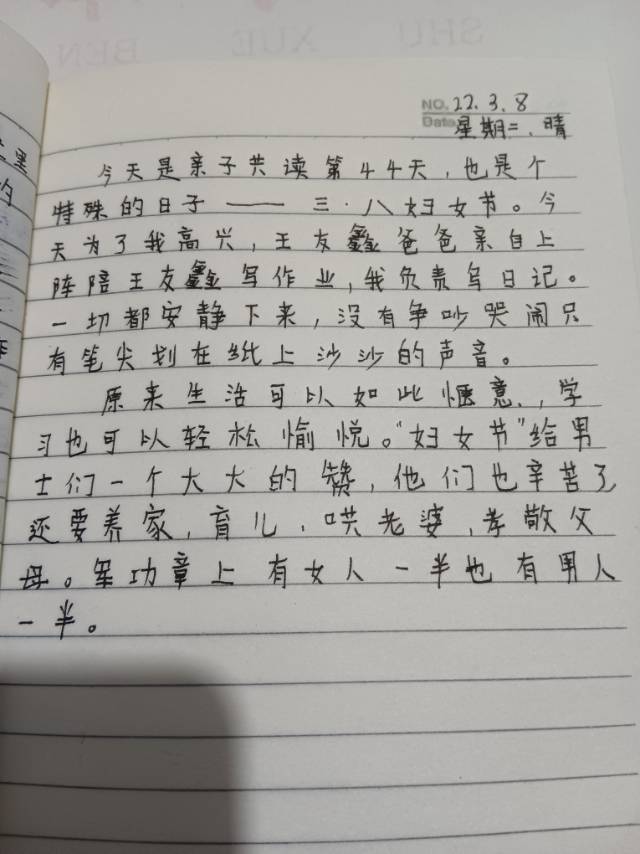 SHU XUE BEN
NO. 22.3.8
Date 星期二.晴
今天是亲子共读第44天，也是个
特殊的日子——三·八妇女节。今
天为了我高兴，王友鑫爸爸亲自上
阵陪王友鑫写作业，我负责写日记。
一切都安静下来，没有争吵哭闹只
有笔尖划在纸上沙沙的声音。
原来生活可以如此惬意，学
习也可以轻松愉悦。“妇女节”给男
士们一个大大的赞，他们也辛苦了
还要养家，育儿，哄老婆，孝敬父
母。军功章上有女人一半也有男人
一半。